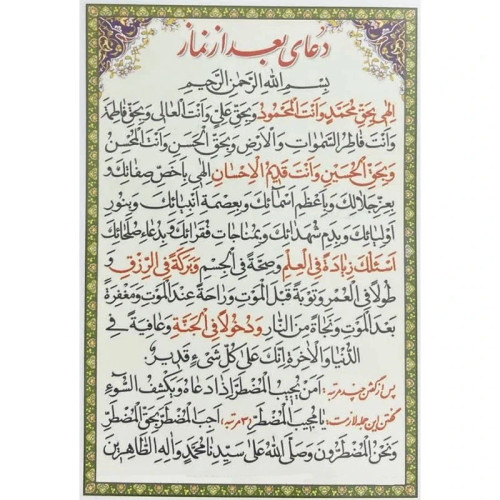 دعای بعد از نماز
بِسْمِ اللهِ الرَّحْمٰنِ الرَّحیمِ
اِلٰهی بِحَقِّ مُحَمَّدٍ وَاَنْتَ الْمَحْمُودُ وَبِحَقِّ عَلِیٍّ وَاَنْتَ الْعالی وَبِحَقِّ فاطِمَةَ
وَاَنْتَ فاطِرُ السَّمٰواتِ وَالْاَرْضِ وَبِحَقِّ الْحَسَنِ وَاَنْتَ الْمُحْسِنُ
وَبِحَقِّ الْحُسَیْنِ وَاَنْتَ قَدیمُ الْاِحْسانِ اِلٰهی بِاَخَصِّ صِفاتِكَ وَ
بِعِزِّ جَلالِكَ وَبِاَعْظَمِ اَسْمائِكَ وَبِعِصْمَةِ اَنْبِیائِكَ وَبِنُورِ
اَوْلِیائِكَ وَبِدَمِ شُهَدائِكَ وَبِمُناجاتِ فُقَرائِكَ وَبِدُعاءِ صُلَحائِكَ
اَسْئَلُكَ زِیادَةً فِی الْعِلْمِ وَصِحَّةً فِی الْجِسْمِ وَبَرَکَةً فِی الرِّزْقِ وَ
طُولًا فِی الْعُمْرِ وَتَوْبَةً قَبْلَ الْمَوْتِ وَراحَةً عِنْدَ الْمَوْتِ وَمَغْفِرَةً
بَعْدَ الْمَوْتِ وَنَجاةً مِنَ النّارِ وَدُخُولًا فِی الْجَنَّةِ وَعافِیَةً فِی
الدُّنْیا وَالْاٰخِرَةِ اِنَّكَ عَلٰی کُلِّ شَیْءٍ قَدیرٌ
پس از گفتن چند مرتبه: اَمَّنْ یُجیبُ الْمُضْطَرَّ اِذا دَعاهُ وَیَکْشِفُ السُّوءَ
گفتن این جمله لازمست: یا مُجیبَ الْمُضْطَرِّ (۳ مرتبه) اَجِبِ الْمُضْطَرَّ بِحَقِّ الْمُضْطَرِّ
وَنَحْنُ الْمُضْطَرُّونَ وَصَلَّی اللهُ عَلٰی سَیِّدِنا مُحَمَّدٍ وَاٰلِهِ الطّاهِرینَ